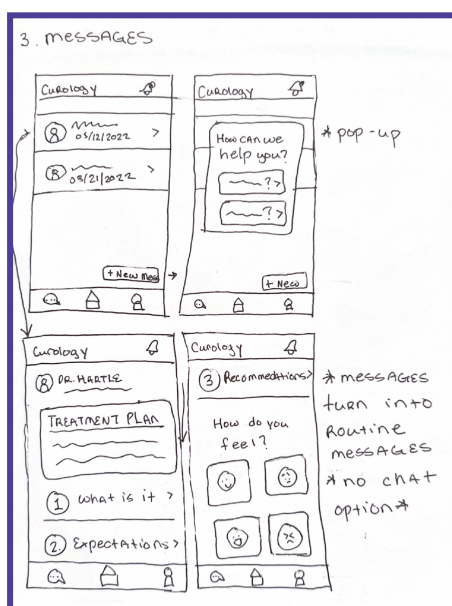 3. MESSAGES
Curology
05/12/2022 >
03/21/2022 >
+ New Mess
Curology
How can we
help you?
? >
? >
+ New
* pop-up
Curology
DR. HARTLE
TREATMENT PLAN
1 What is it >
2. Expectations >
Curology
3 Recommedations >
How do you
feel?
* messages
turn into
Routine
messages
* no chat
option *